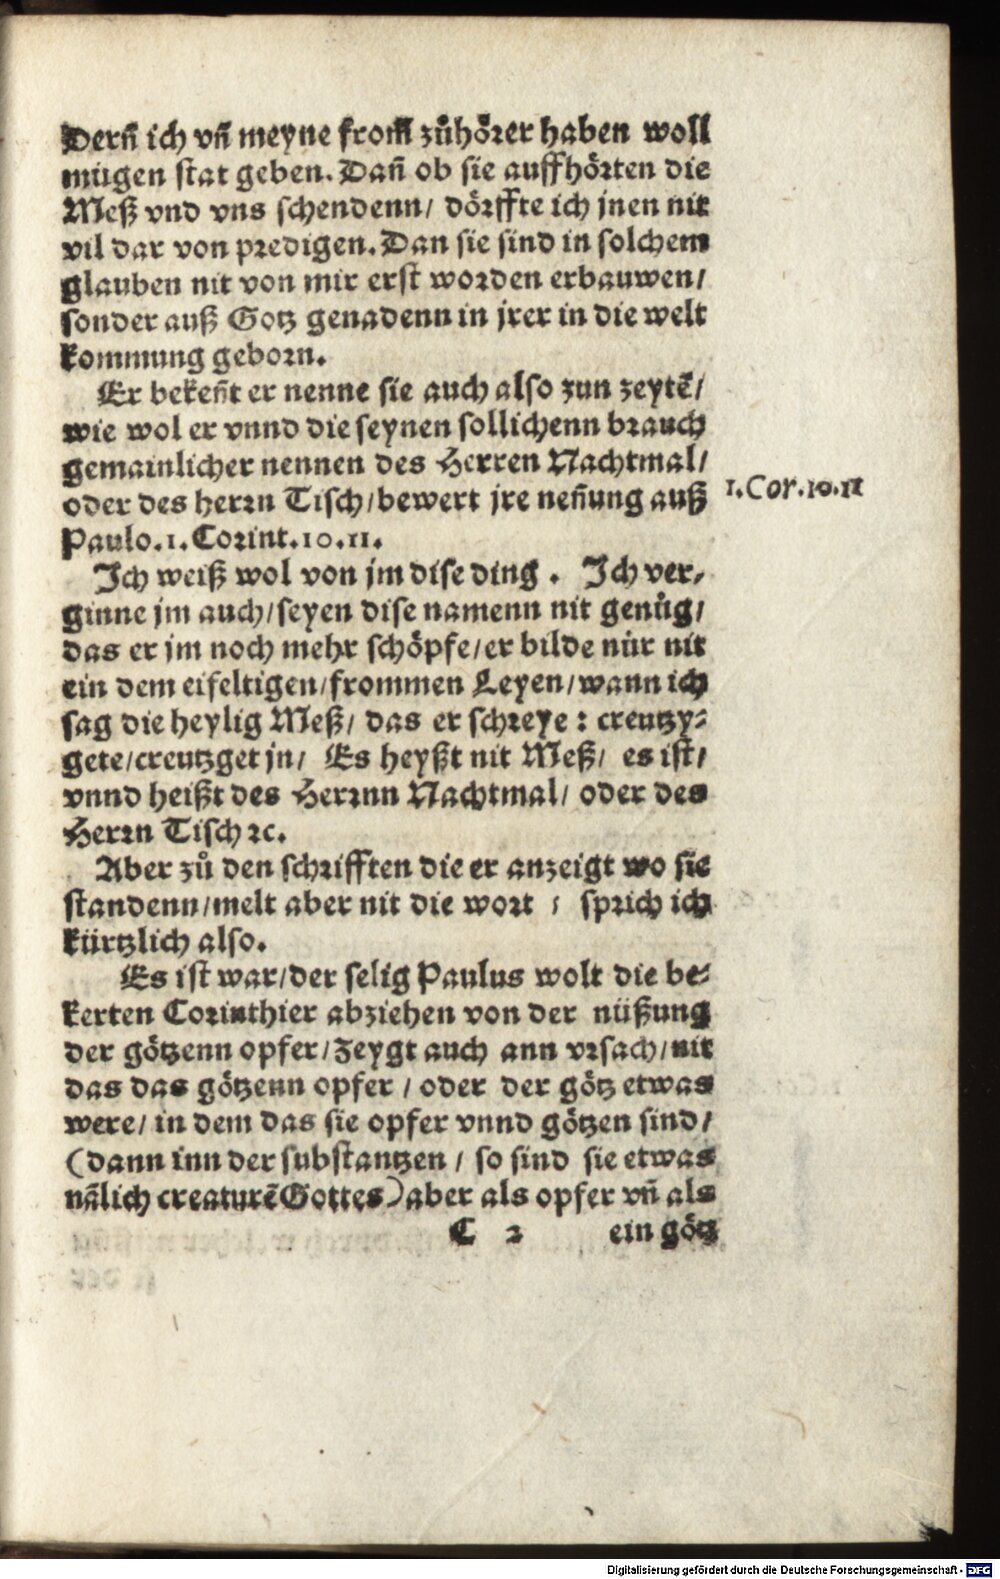 Derñ ich vñ meyne from̃ zůhörer haben woll
mügen stat geben. Dañ ob sie auffhörten die
Meß vnd vns schendenn/ dörffte ich jnen nit
vil dar von predigen. Dan sie sind in solchem
glauben nit von mir erst worden erbauwen/
sonder auß Gotz genadenn in jrer in die welt
kommung geborn.
Er bekeñt er nenne sie auch also zun zeytẽ/
wie wol er vnnd die seynen sollichenn brauch
gemainlicher nennen des Herren Nachtmal/
oder des herrn Tisch/bewert jre neñung auß
1.Cor.10.11
Paulo.1.Corint.10.11.
Ich weiß wol von jm dise ding. Ich ver-
ginne jm auch/seyen dise namenn nit genůg/
das er jm noch mehr schöpfe/er bilde nür nit
ein dem eifeltigen/frommen Leyen/wann ich
sag die heylig Meß/ das er schreye: creutzy-
gete/creutzget jn/ Es heyßt nit Meß/ es ist/
vnnd heißt des Herrnn Nachtmal/ oder des
Herrn Tisch ꝛc.
Aber zů den schrifften die er anzeigt wo sie
standenn/melt aber nit die wort ; sprich ich
kürtzlich also.
Es ist war/der selig Paulus wolt die be-
kerten Corinthier abziehen von der nüßung
der götzenn opfer/Zeygt auch ann vrsach/nit
das das götzenn opfer/ oder der götz etwas
were/ in dem das sie opfer vnnd götzen sind/
(dann inn der substantzen/ so sind sie etwas
nãlich creaturẽ Gottes) aber als opfer vñ als
C 2 ein götz
Digitalisierung gefördert durch die Deutsche Forschungsgemeinschaft - DFG